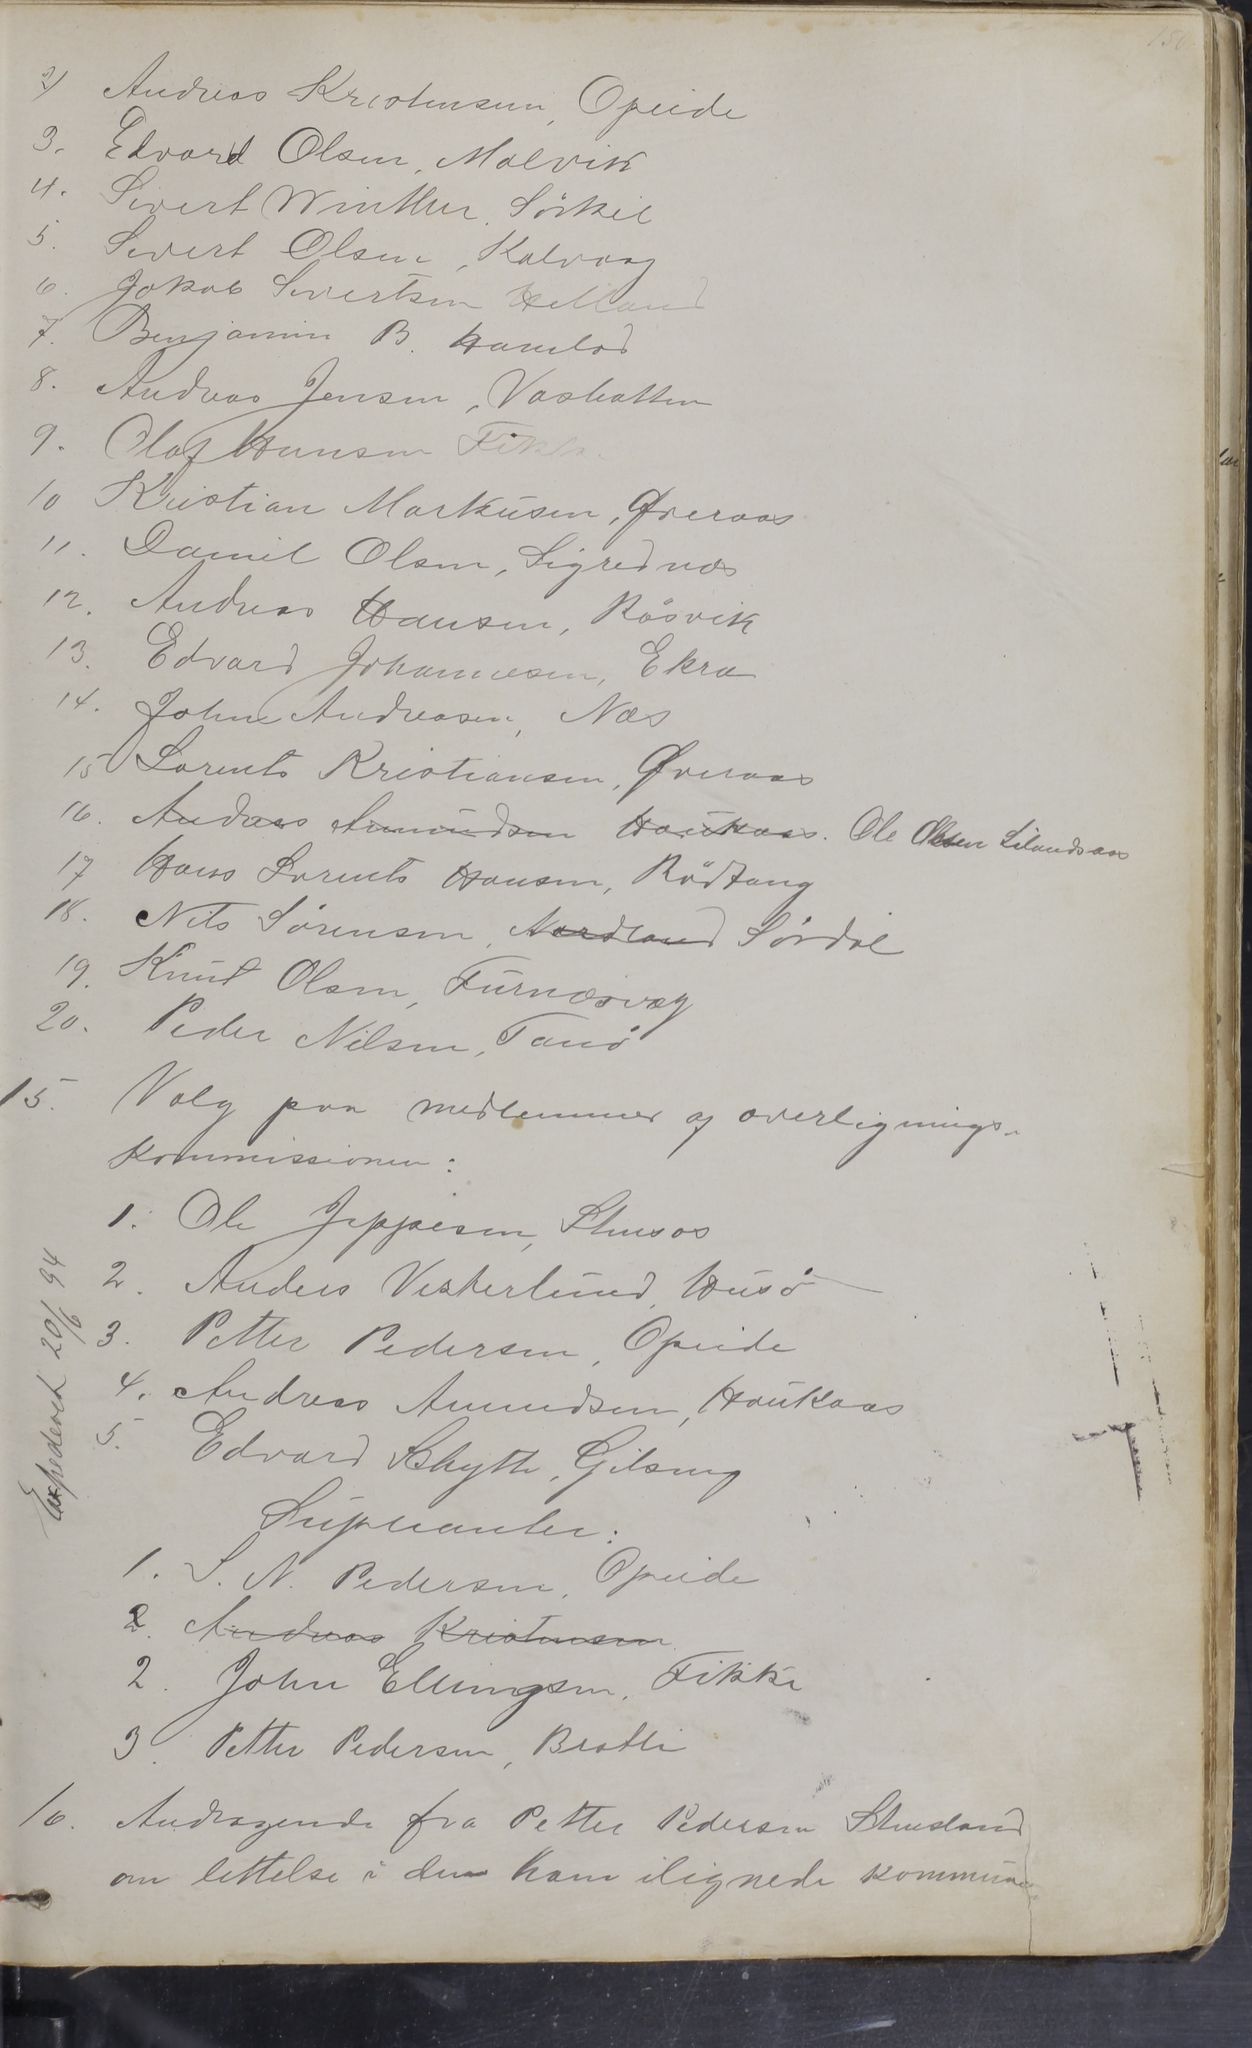 150
2) Andreas Kristensen, Opeide
3. Edvard Olsen, Malvik
4. Sivert Winther, Sörkil
5. Sivert Olsen, Kalvaag
6. Jakob Sivertsen Helland
7. Benjamin B. Hamelos
8. Andreas Jensen, Vashatten
9. Olaf Hansen Fikke
10 Kristian Markusen, Øveraas
11. Daniel Olsen, Sigrednæs
12. Andreas Hansen, Rösvik
13. Edvard Johannesen, Ekra
14. John Andreasen, Næs
15 Lorents Kristiansen, Øveraas
16. Andreas Amundsen Haukaas. Ole Olsen Lilandsaas
17 Hans Lorents Hansen, Rödtang
18. Nils Sørensen, Nordland Sördal
19. Knut Olsen, Furnæsvag
20. Peder Nilsen, Tanö
15. Valg paa medlemmer af overlignings-
kommissionen:
1. Ole Jeppesen, Stensos
2. Anders Vesterlund, Husö
3. Petter Pedersen, Opeide
4. Andreas Amundsen, Haukaas
5. Edvard Skytte, Gilseng
Expederet 20/6 94
Supleanter:
1. S. N. Pedersen, Opeide
2. Andreas Kristensen
2. John Ellingsen, Fikke
3. Petter Pedersen, Bratli
16. Andragende fra Petter Pedersen Stensland
om lettelse i den ham ilignede kommune-